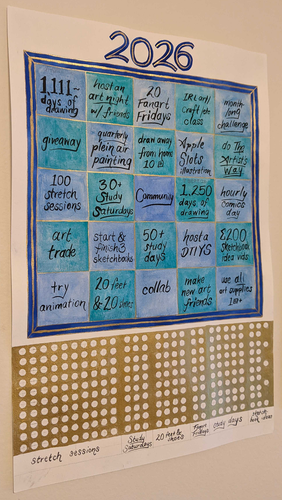 2026
1,111~
days of
drawing
host an
art night
w/ friends
20
Fanart
Fridays
IRL art/
Craft etc
class
month-
long
challenge
giveaway
quarterly
plein air
painting
draw away
from home
10
Apple
Slots
illustration
do The
Artist's
Way
100
stretch
sessions
30+
Study
Saturdays
Community
1,250
days of
drawing
hourly
comics
day
art
trade
start &
finish 3
sketchbooks
50+
study
days
host a
DTIYS
sketchbook
idea vids
try
animation
20 feet
& 20
collab
make
new art
friends
use all
art supplies
100+
stretch sessions
Study
Saturdays
20 feet &
Fanart
Fridays
study days
sketch
book ideas